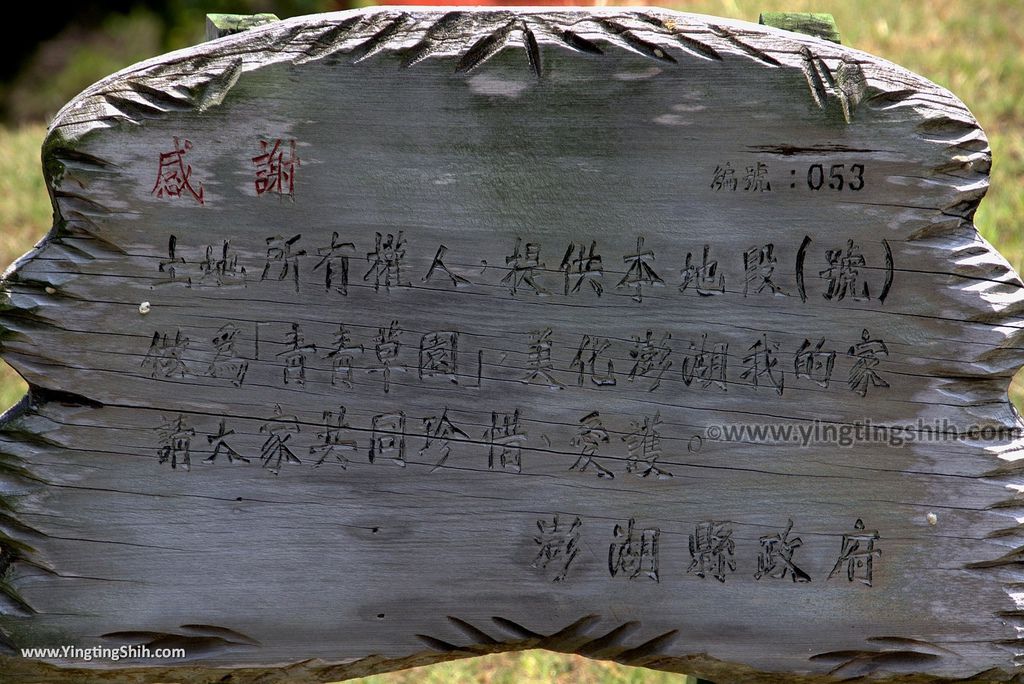 感謝
編號：053
土地所有權人，提供本地段（號）
做為「青青草園」，美化澎湖我的家
請大家共同珍惜、愛護。
©www.yingtingshih.com
澎湖縣政府
www.YingtingShih.com